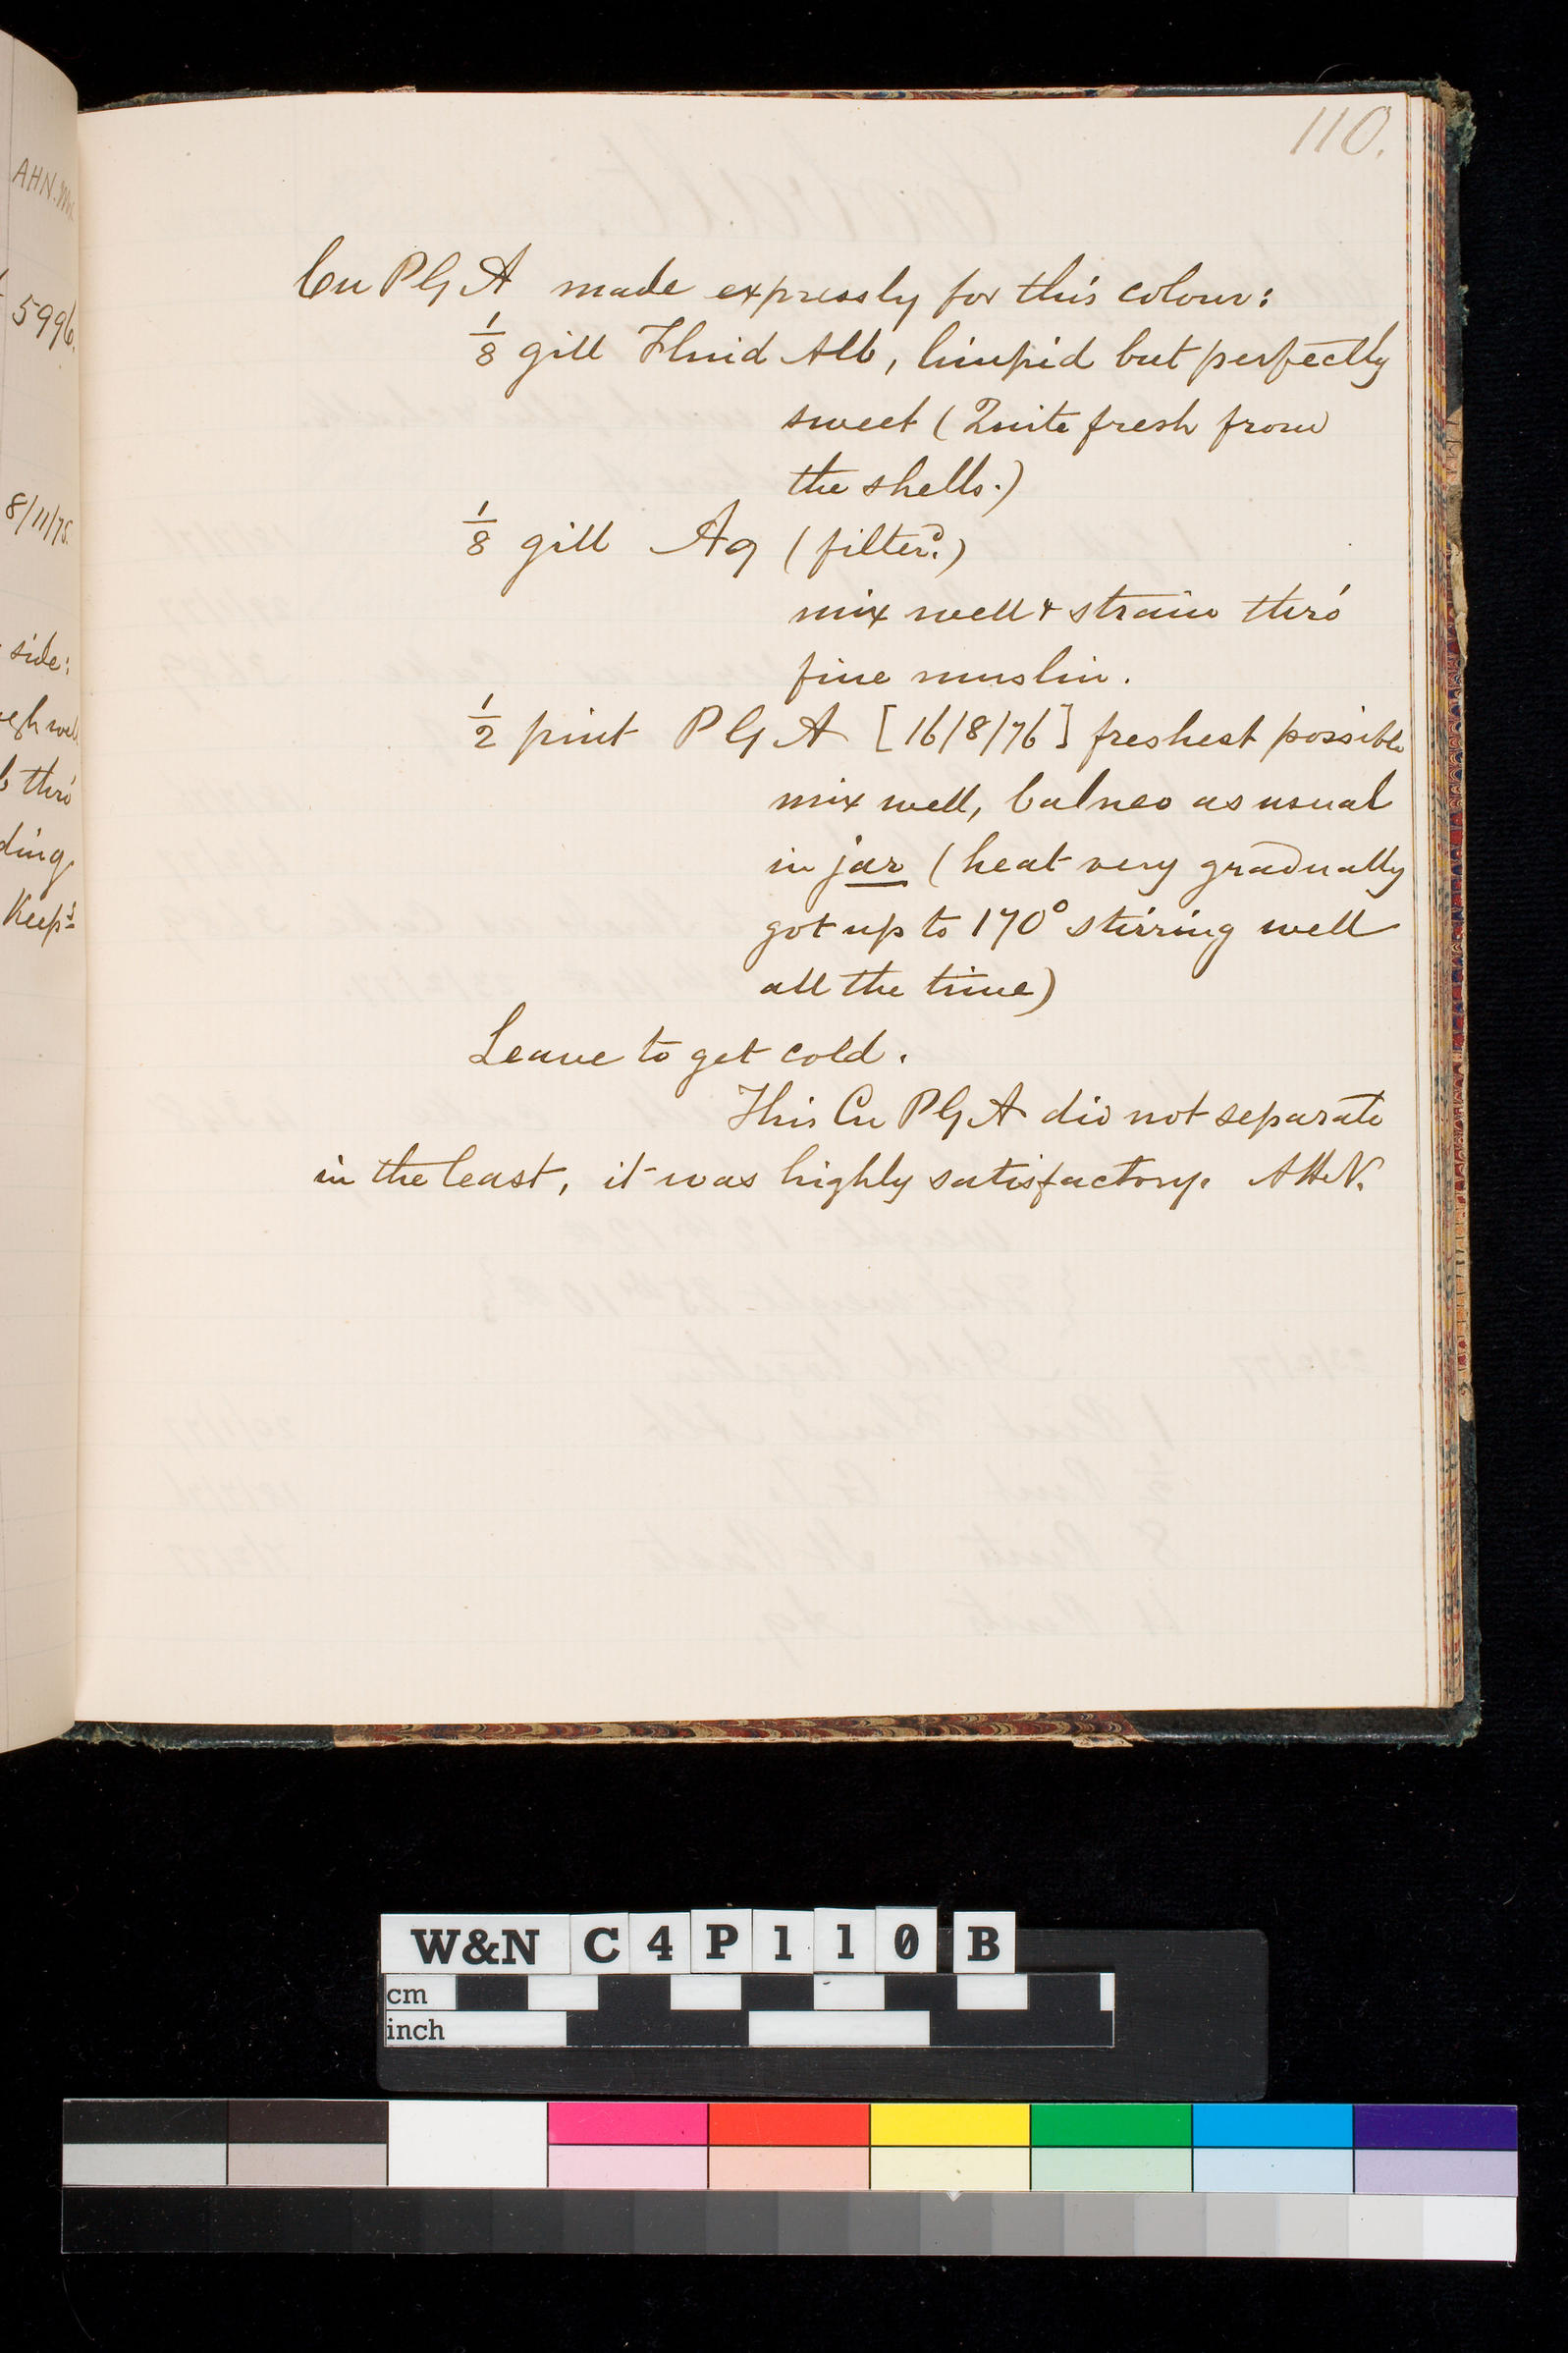 110.
AHN.
5996.
8/11/75.
side:
thro'
ding,
Keeps
Cu P G A made expressly for this colour:
1/8 gill Fluid Alb, limpid but perfectly
sweet (Quite fresh from
the shells.)
1/8 gill Aq (filterd.)
mix well & strain thro'
fine muslin.
1/2 pint P G A [16/8/76] freshest possible
mix well, balneo as usual
in jar (heat very gradually
got up to 170° stirring well
all the time)
Leave to get cold.
This Cu P G A did not separate
in the least, it was highly satisfactory. AHN.
W&N C4P110 B
cm
inch